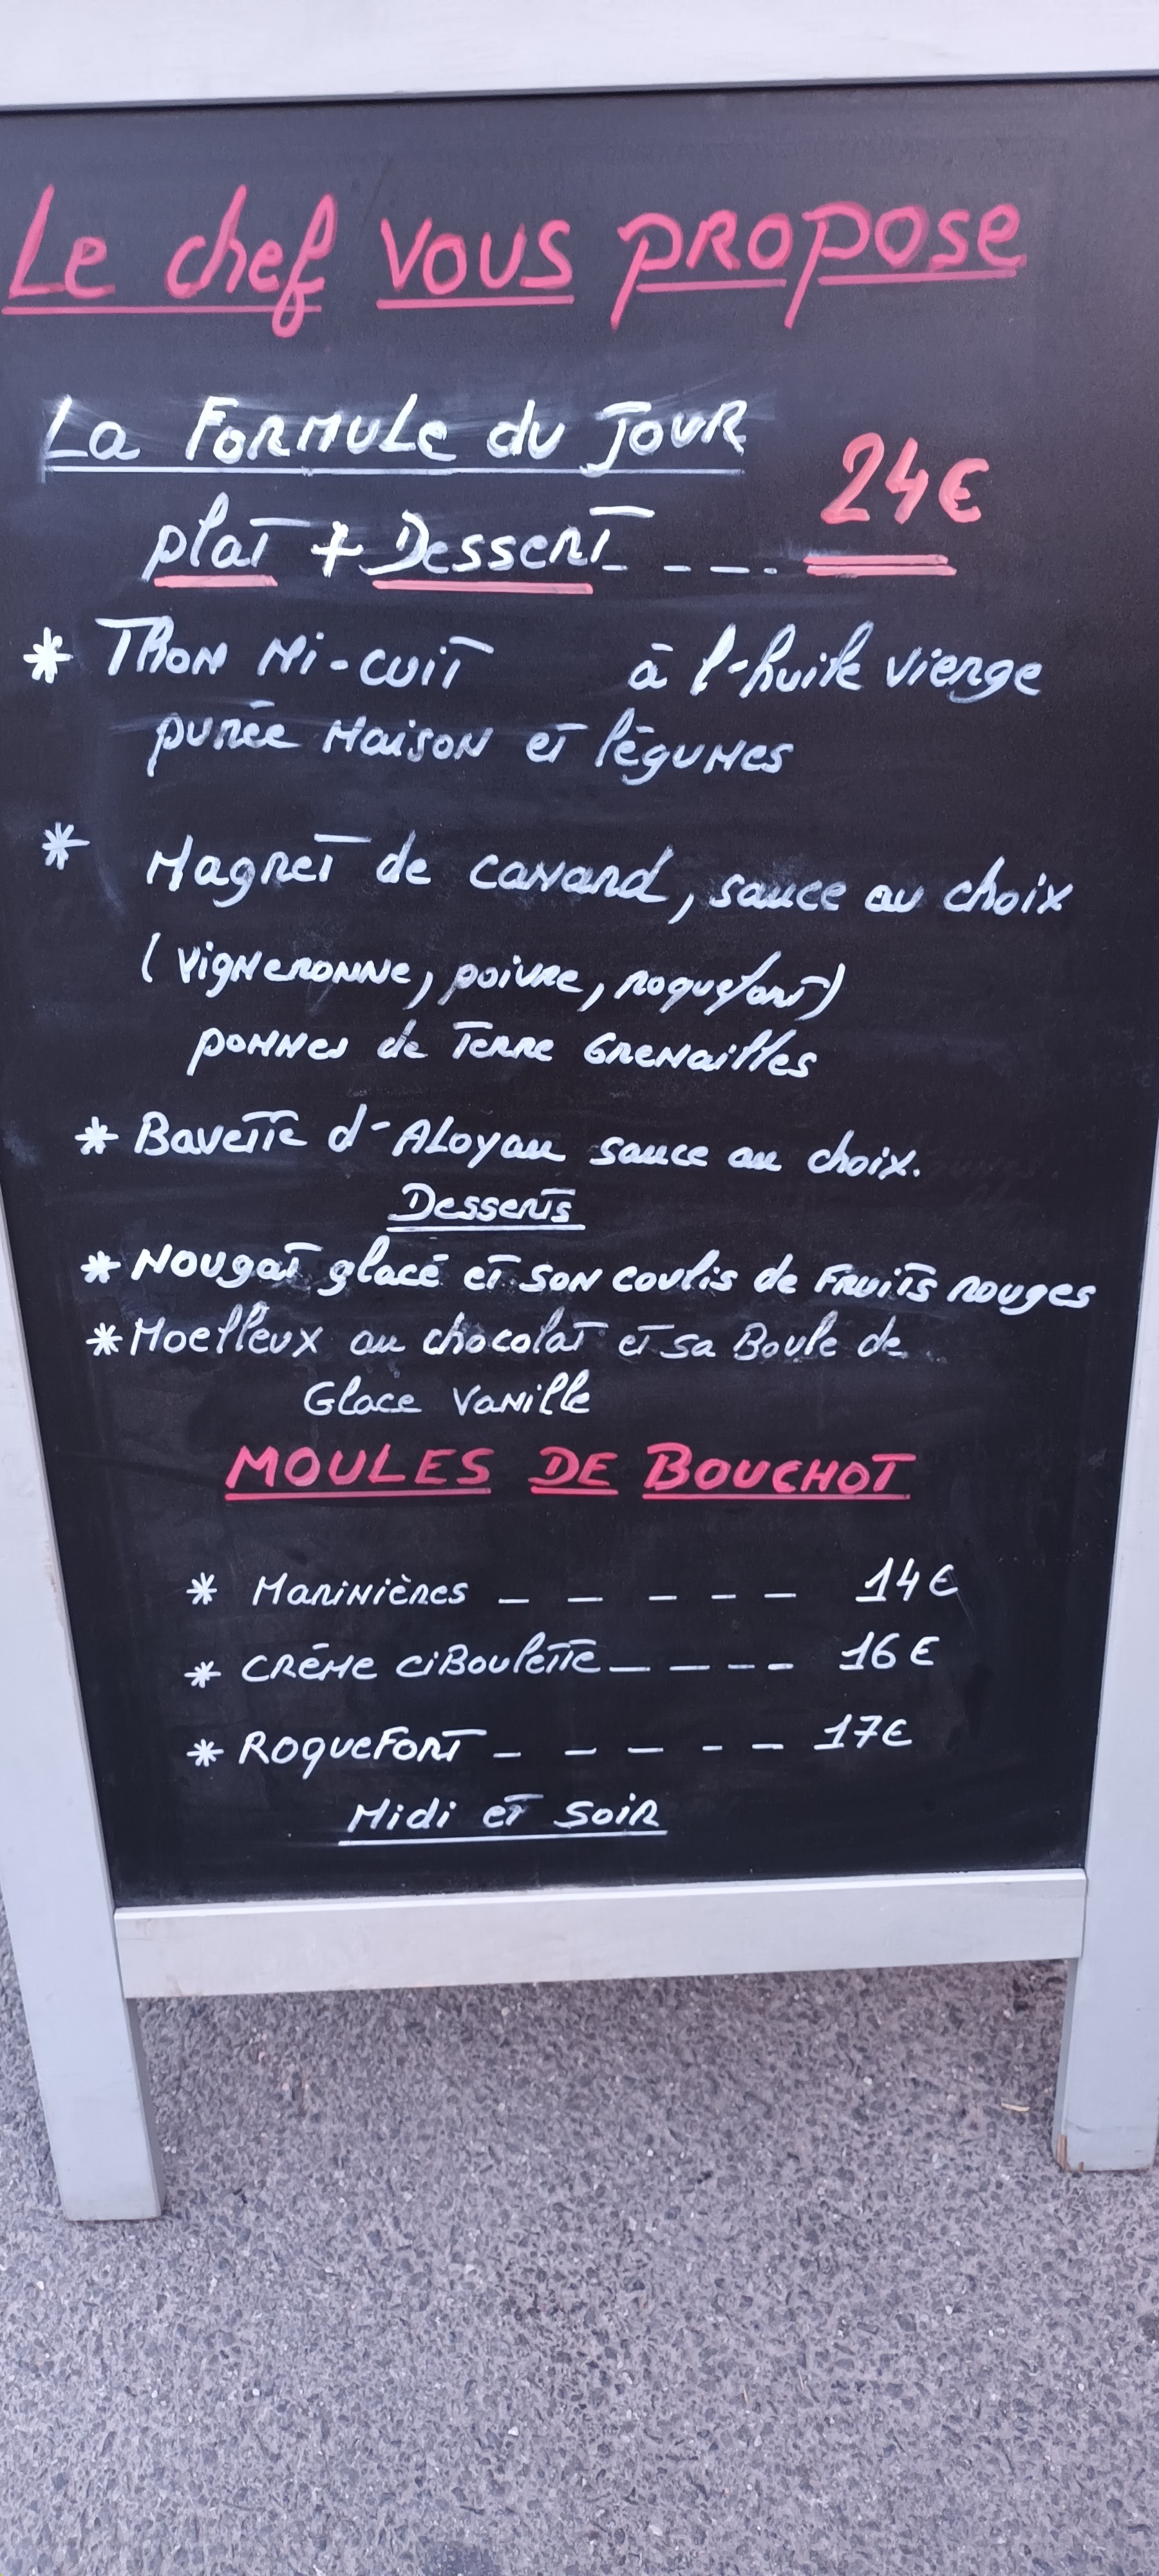 Le chef vous propose
La Formule du Jour
24€
plat + Dessert_ _ _ _.
* Thon Mi-cuit à l'huile vierge
purée Maison et légumes
* Magret de canard, sauce au choix
(vigneronne, poivre, roquefort)
pommes de Terre Grenailles
* Bavette d'Aloyau sauce au choix.
Desserts
* Nougat glacé et son coulis de Fruits rouges
* Moelleux au chocolat et sa Boule de
Glace Vanille
MOULES DE BOUCHOT
* Marinières _ _ _ _ _ 14€
* Créme ciboulette _ _ _ _ 16€
* Roquefort _ _ _ _ _ 17€
Midi et Soir